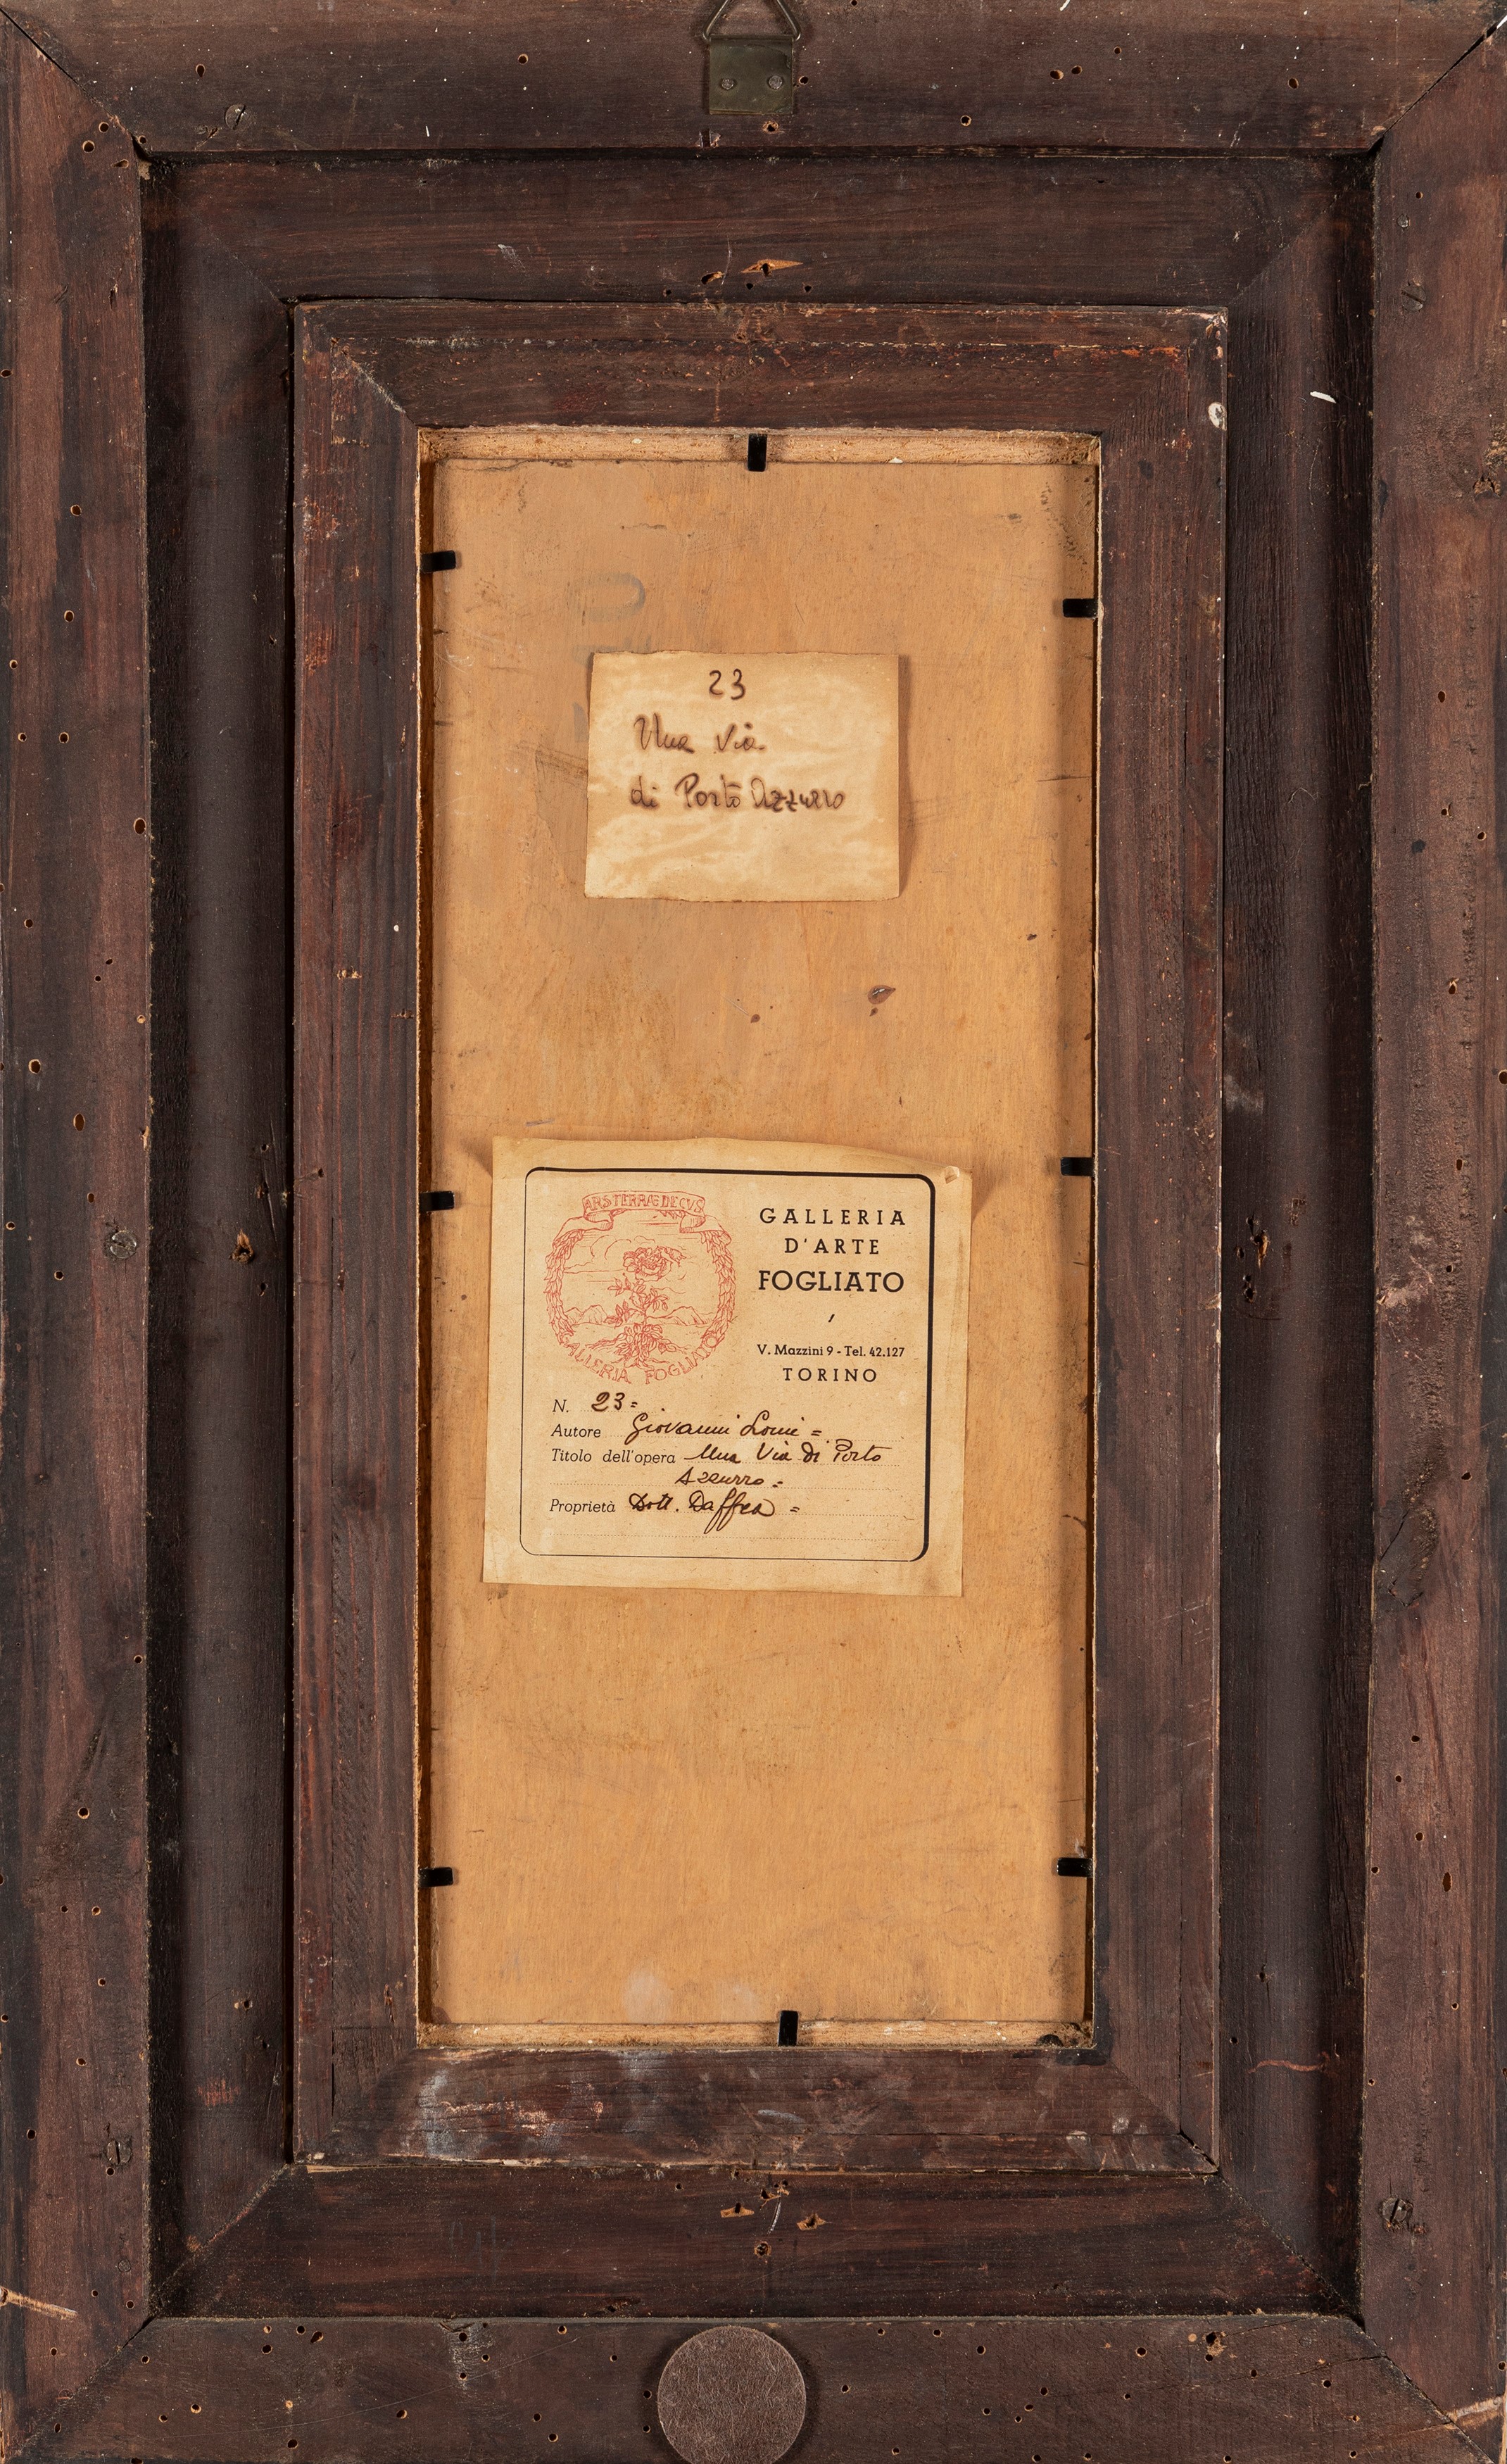 23
Una Via
di Porto Azzurro
ARS TERRÆ DECVS
GALLERIA FOGLIATO
GALLERIA
D'ARTE
FOGLIATO
V. Mazzini 9 - Tel. 42.127
TORINO
N. 23=
Autore Giovanni Lomi =
Titolo dell'opera Una Via di Porto
Azzurro =
Proprietà Dott.